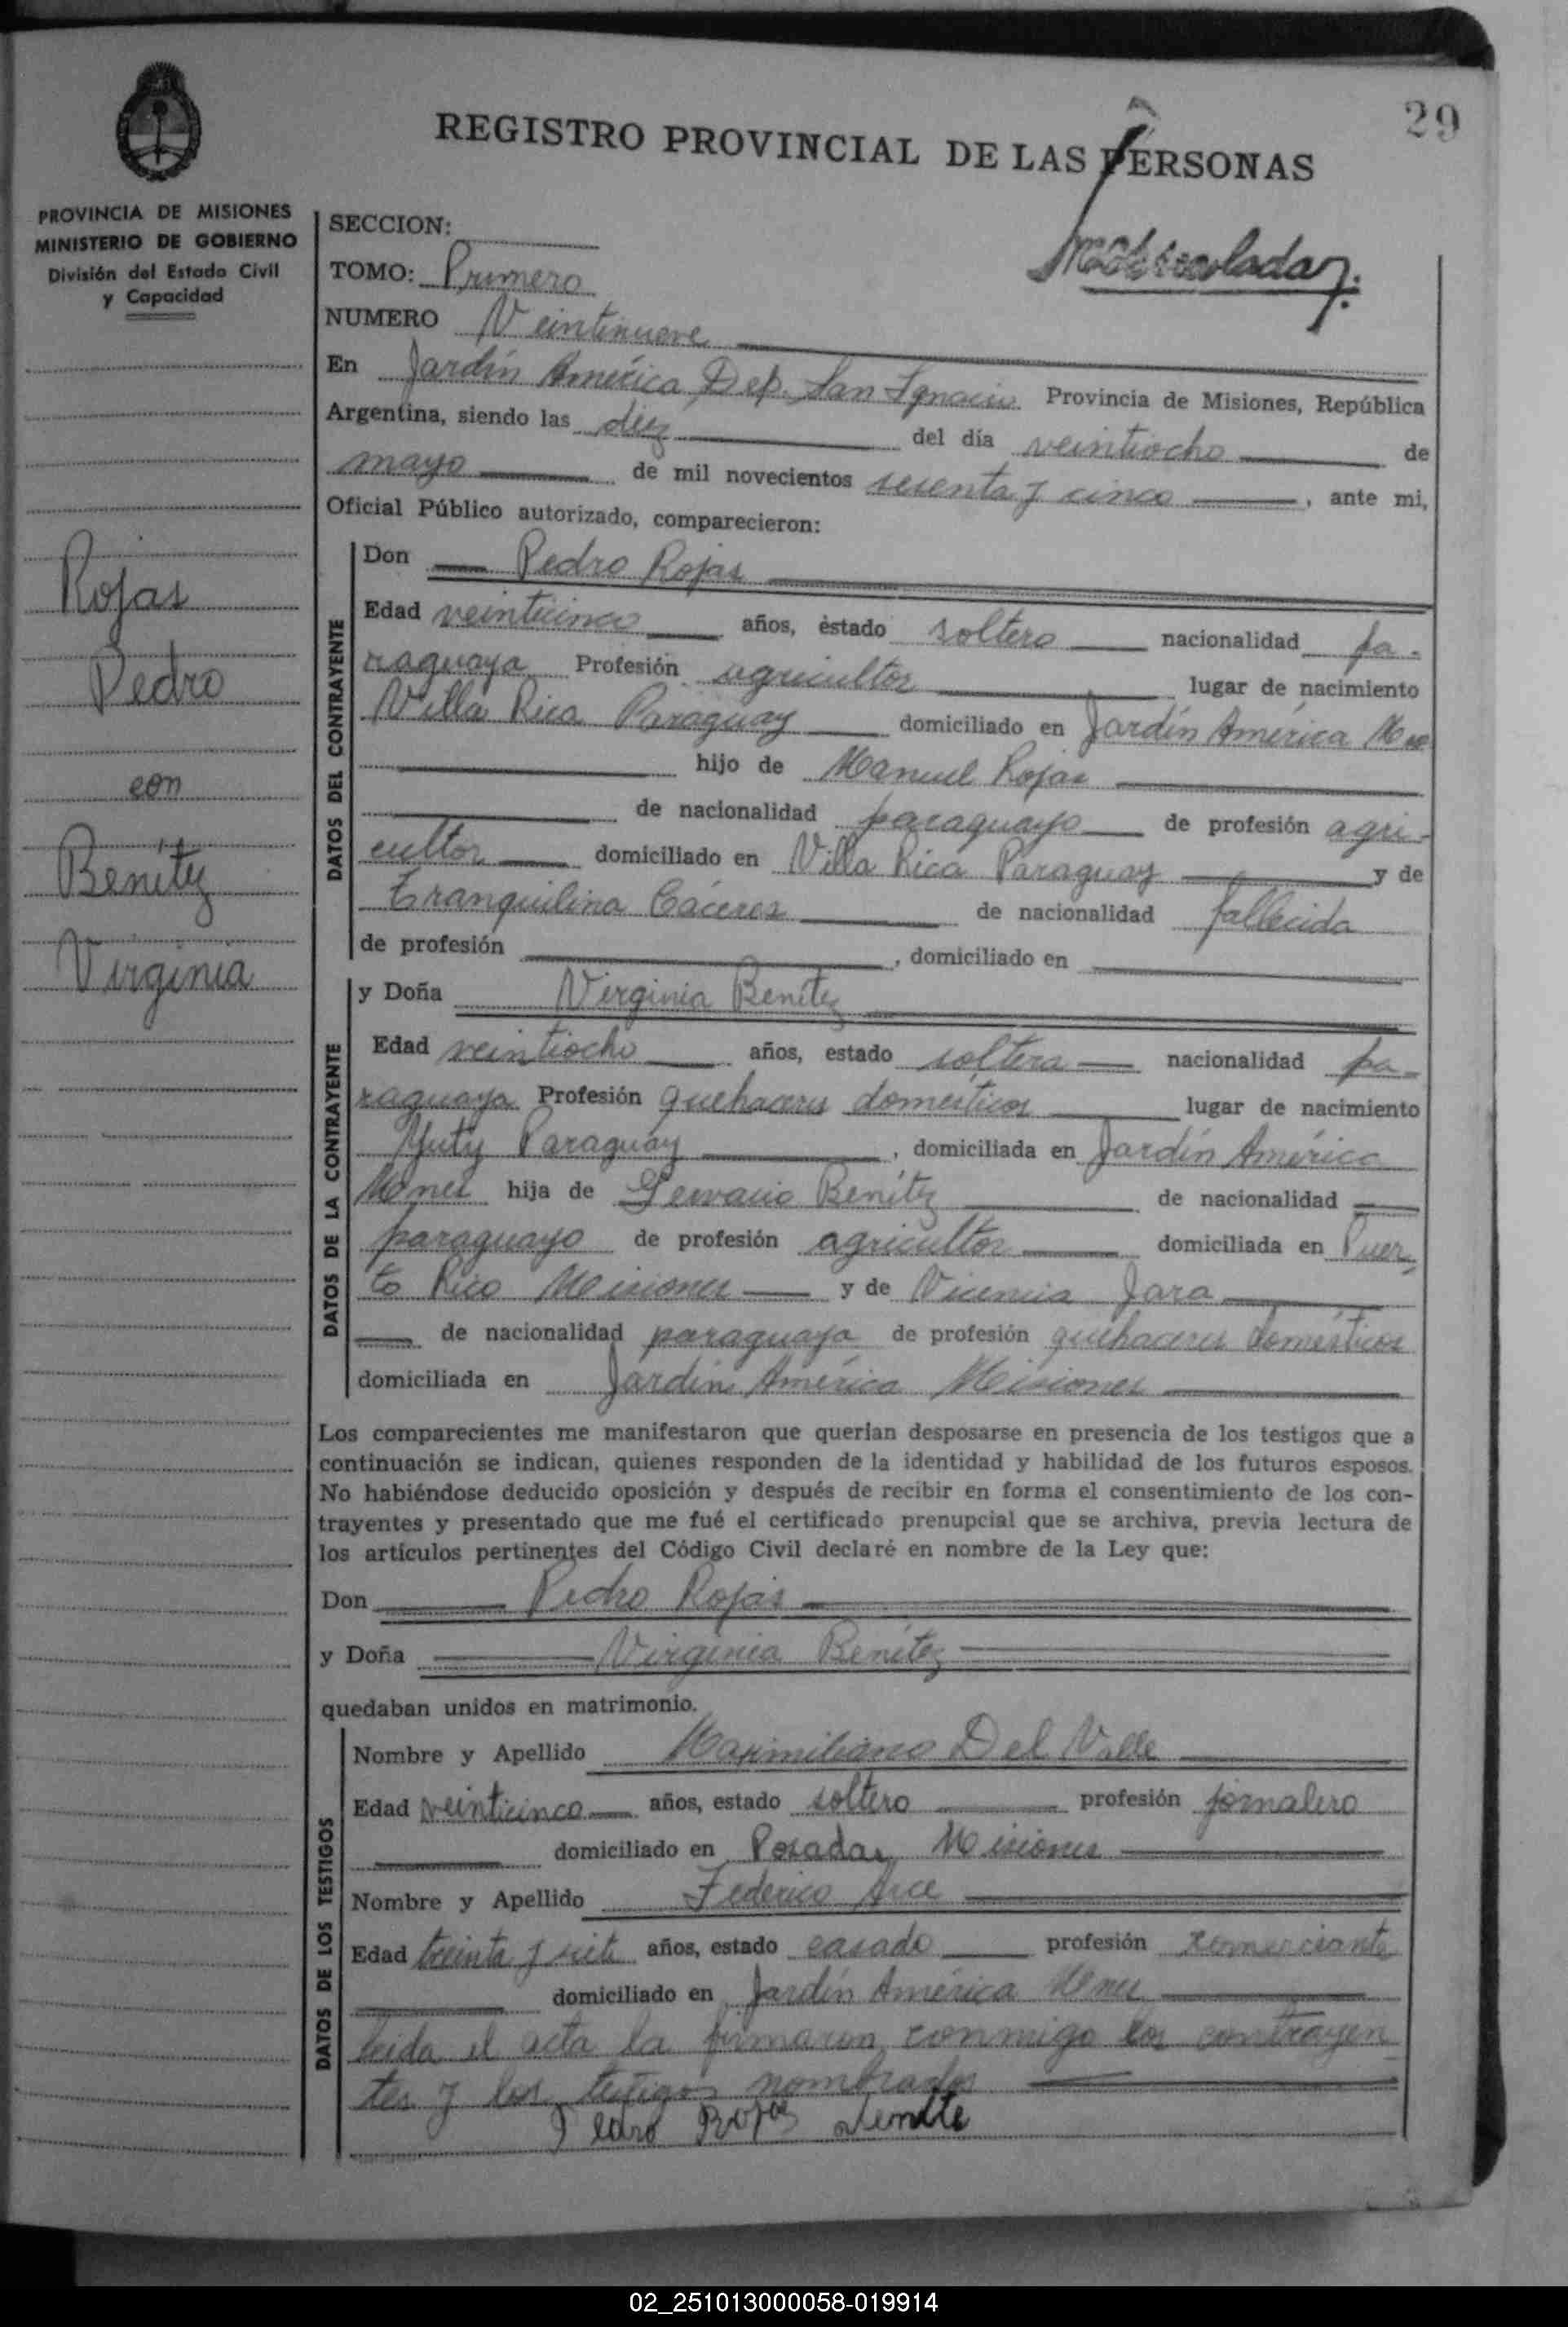 29
REGISTRO PROVINCIAL DE LAS PERSONAS
PROVINCIA DE MISIONES
MINISTERIO DE GOBIERNO
División del Estado Civil
y Capacidad
Rojas
Pedro
con
Benítez
Virginia
SECCION:
TOMO: Primero
NUMERO Veintinueve
En Jardín América Dep. San Ignacio Provincia de Misiones, República
Argentina, siendo las diez del día veintiocho de
mayo de mil novecientos sesenta y cinco, ante mi,
Oficial Público autorizado, comparecieron:
DATOS DEL CONTRAYENTE
Don Pedro Rojas
Edad veinticinco años, estado soltero nacionalidad pa-
raguaya Profesión agricultor lugar de nacimiento
Villa Rica Paraguay domiciliado en Jardín América
hijo de Manuel Rojas
de nacionalidad paraguayo de profesión agri-
cultor domiciliado en Villa Rica Paraguay y de
Tranquilina Cáceres de nacionalidad fallecida
de profesión , domiciliado en
DATOS DE LA CONTRAYENTE
y Doña Virginia Benítez
Edad veintiocho años, estado soltera nacionalidad pa-
raguaya Profesión quehaceres domésticos lugar de nacimiento
Yuty Paraguay , domiciliada en Jardín América
Mnes hija de Gervacio Benítez de nacionalidad
paraguayo de profesión agricultor domiciliada en Puer-
to Rico Misiones y de Vicencia Jara
de nacionalidad paraguaya de profesión quehaceres domésticos
domiciliada en Jardín América Misiones
Los comparecientes me manifestaron que querían desposarse en presencia de los testigos que a
continuación se indican, quienes responden de la identidad y habilidad de los futuros esposos.
No habiéndose deducido oposición y después de recibir en forma el consentimiento de los con-
trayentes y presentado que me fué el certificado prenupcial que se archiva, previa lectura de
los artículos pertinentes del Código Civil declaré en nombre de la Ley que:
Don Pedro Rojas
y Doña Virginia Benítez
quedaban unidos en matrimonio.
DATOS DE LOS TESTIGOS
Nombre y Apellido Maximiliano Del Valle
Edad veinticinco años, estado soltero profesión jornalero
domiciliado en Posadas Misiones
Nombre y Apellido Federico Arce
Edad treinta y siete años, estado casado profesión comerciante
domiciliado en Jardín América Mnes
leida el acta la firmaron conmigo los contrayen
tes y los testigos nombrados
Pedro Rojas
02_251013000058-019914